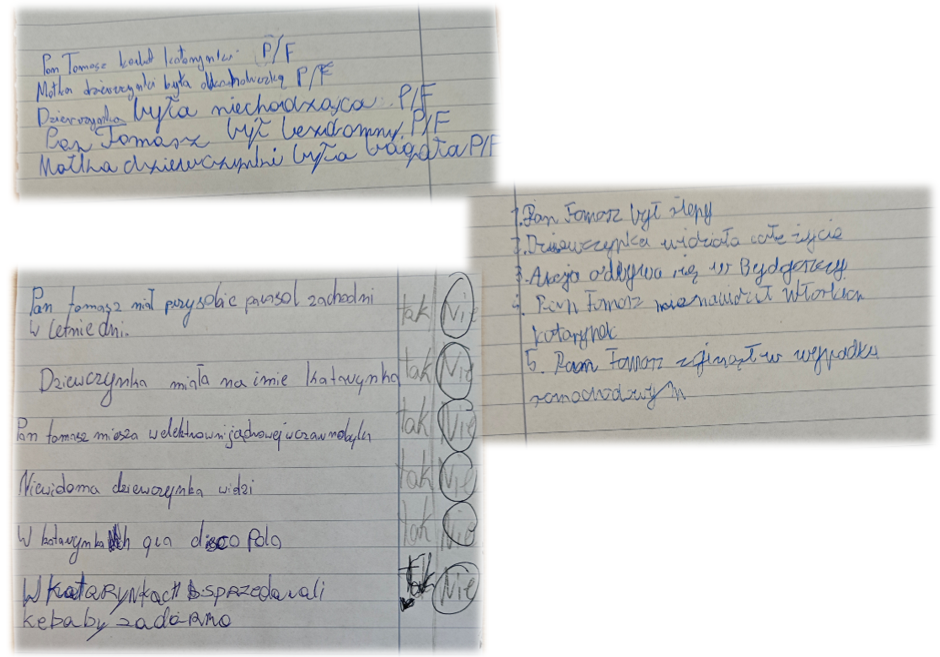 Pan Tomasz kochał katarynki P/F
Matka dziewczynki była P/F
Dziewczynka była niechodząca P/F
Pan Tomasz był bezdomny P/F
Matka dziewczynki była bagata P/F
1. Pan Tomasz był slepy
2. Dziewczynka widziała całe życie
3. Akcja odbywa się w Bydgoszczy
4. Pan Tomasz nienawidził
katarynek
5. Pan Tomasz zginął w wypadku
samochodzwym
Pan tomasz miał przysobie parasol zachodni tak Nie
w letnie dni.
Dziewczynka miała na imie katarynka tak Nie
Pan tomasz miesza welektrowni jądrowej wczarnobylu tak Nie
Niewidoma dziewczynka widzi tak Nie
W gra disco Polo tak Nie
W kataRynkacH SPRZedawali tak Nie
kebaby zadaRmo